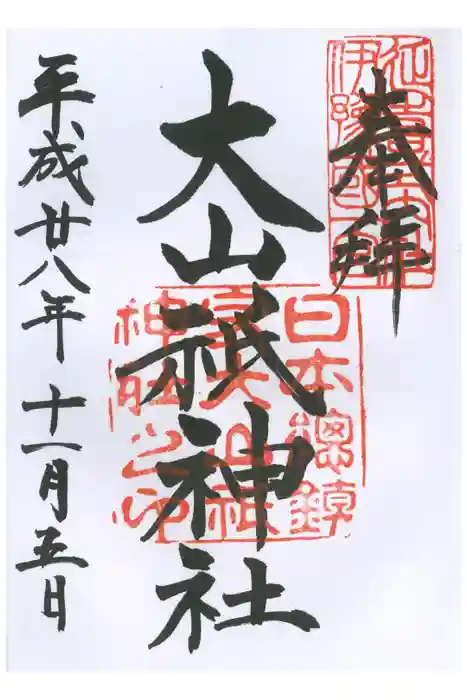 奉拝
伊豫國
大山祇神社
日本總鎮
守大山祇
神社之印
平成廿八年十一月五日